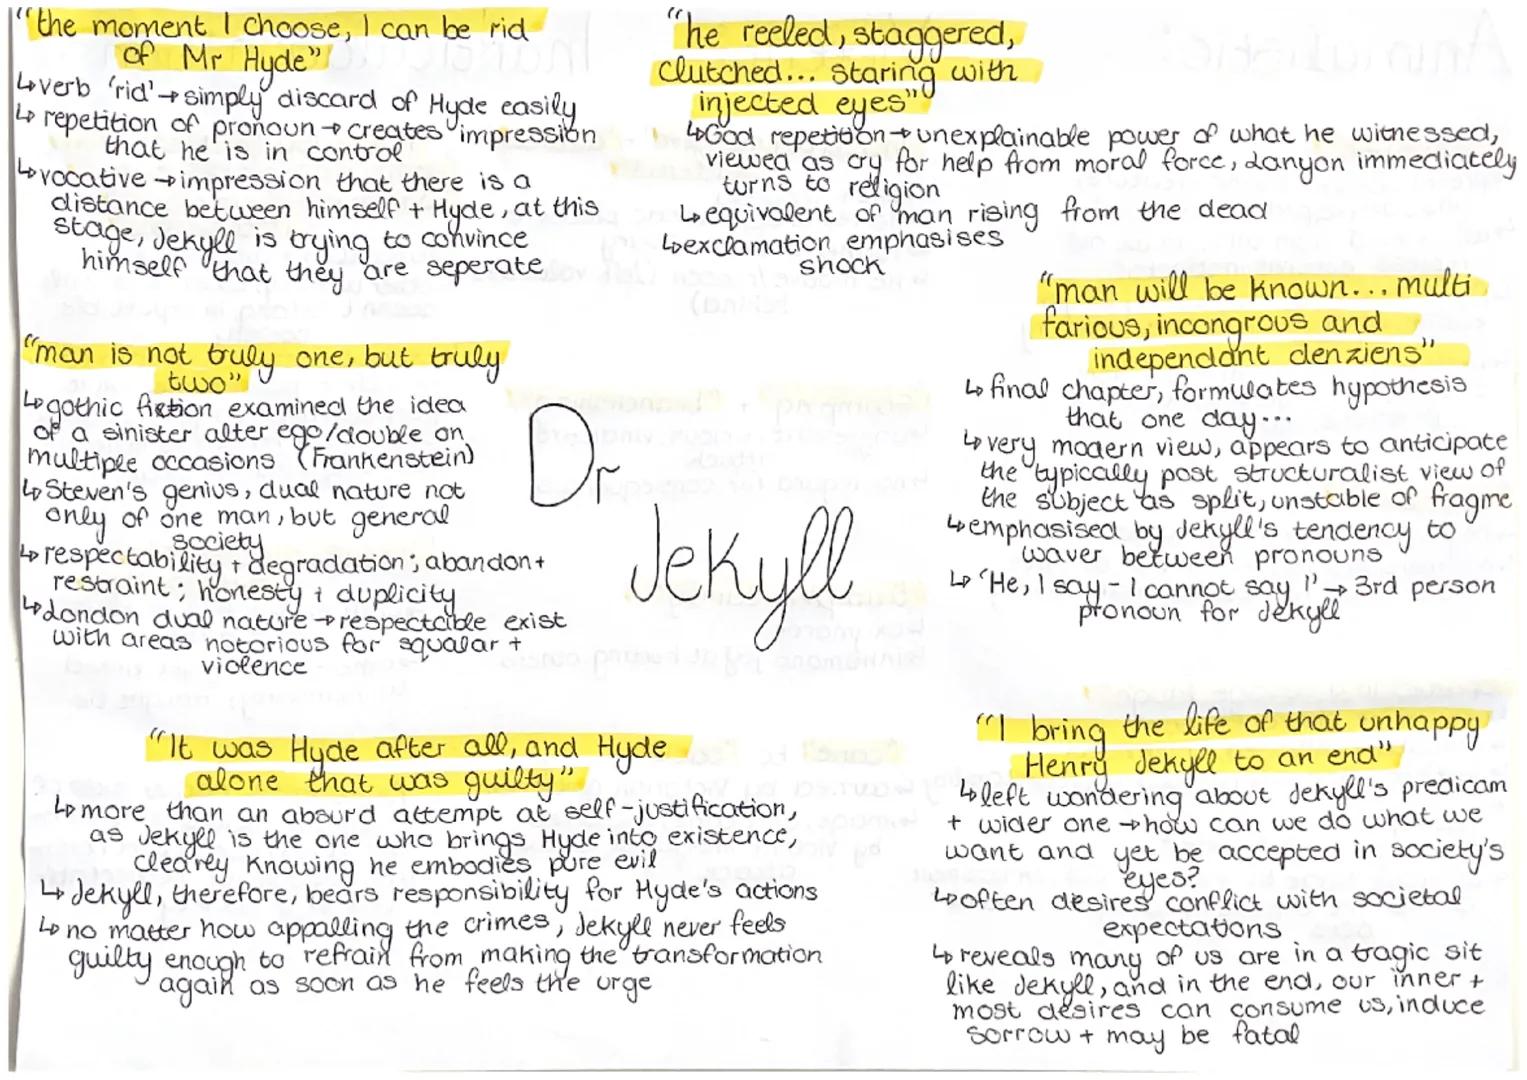 "the moment I choose, I can be rid
of Mr Hyde"
↳ verb 'rid' → simply discard of Hyde easily
↳ repetition of pronoun → creates impression
that he is in control
↳ vocative → impression that there is a
distance between himself + Hyde, at this
stage, Jekyll is trying to convince
himself that they are seperate
"he reeled, staggered,
clutched... staring with
injected eyes"
↳ God repetition → unexplainable power of what he witnessed,
viewed as cry for help from moral force, Lanyon immediately
turns to religion
↳ equivalent of man rising from the dead
↳ exclamation emphasises
shock
"man will be known... multi
farious, incongrous and
independant denziens"
↳ final chapter, formulates hypothesis
that one day...
↳ very modern view, appears to anticipate
the typically post structuralist view of
the subject as split, unstable of fragme
↳ emphasised by Jekyll's tendency to
waver between pronouns
↳ 'He, I say - I cannot say I' → 3rd person
pronoun for Jekyll
"man is not truly one, but truly
two"
↳ gothic fiction examined the idea
of a sinister alter ego/double on
multiple occasions (Frankenstein)
↳ Steven's genius, dual nature not
only of one man, but general
society
↳ respectability + degradation; abandon +
restraint; honesty + duplicity
↳ London dual nature → respectable exist
with areas notorious for squalar +
violence
Dr
Jekyll
"It was Hyde after all, and Hyde
alone that was guilty"
↳ more than an absurd attempt at self-justification,
as Jekyll is the one who brings Hyde into existence,
clearly knowing he embodies pure evil
↳ Jekyll, therefore, bears responsibility for Hyde's actions
↳ no matter how appalling the crimes, Jekyll never feels
guilty enough to refrain from making the transformation
again as soon as he feels the urge
"I bring the life of that unhappy
Henry Jekyll to an end"
↳ left wondering about Jekyll's predicam
+ wider one → how can we do what we
want and yet be accepted in society's
eyes?
↳ often desires conflict with societal
expectations
↳ reveals many of us are in a tragic sit
like Jekyll, and in the end, our inner +
most desires can consume us, induce
sorrow + may be fatal